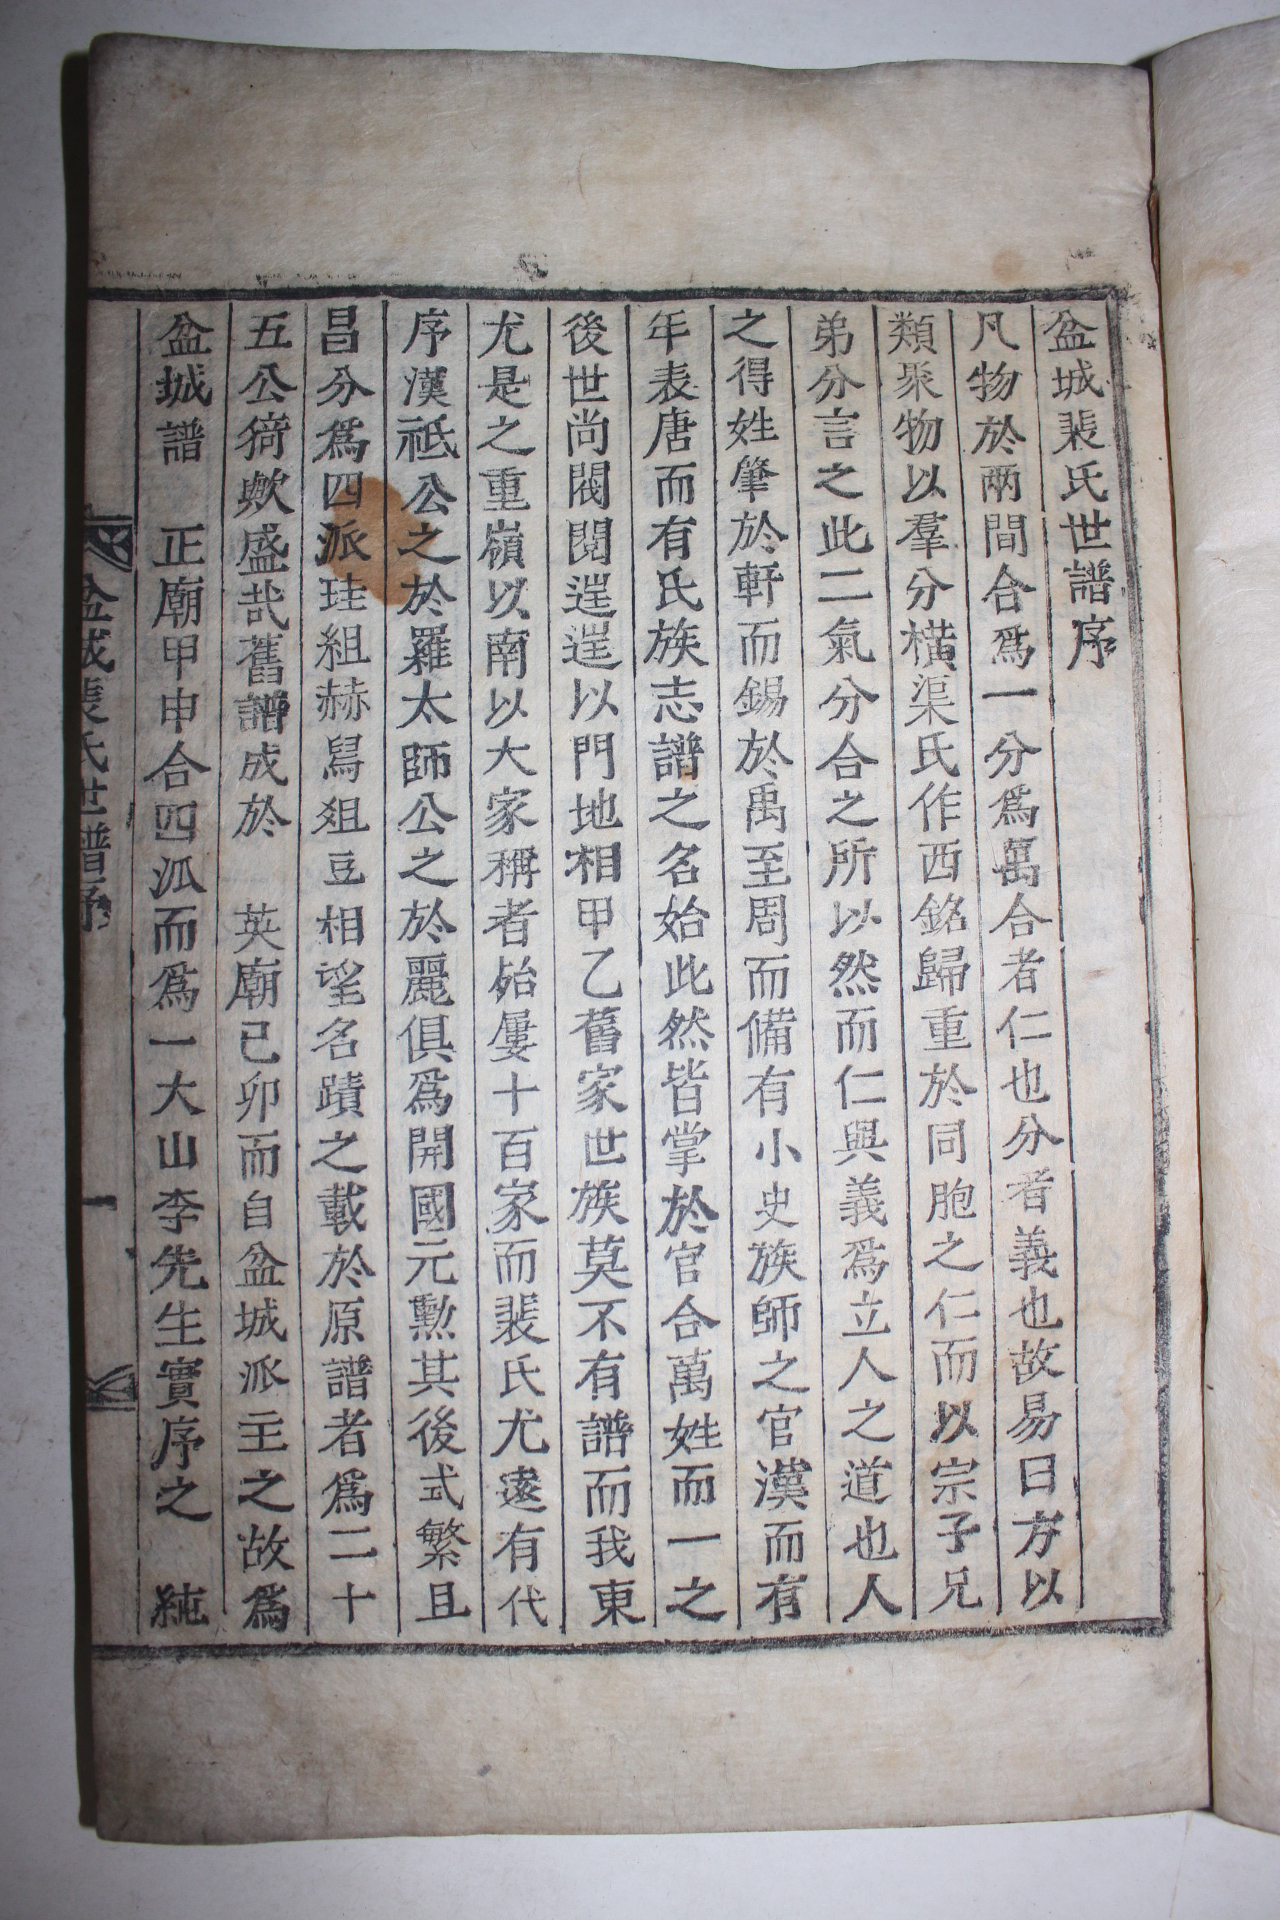 盆城裴氏世譜序
凡物於兩間合爲一分爲萬合者仁也分者義也故易曰方以
類聚物以羣分橫渠氏作西銘歸重於同胞之仁而以宗子兄
弟分言之此二氣分合之所以然而仁與義爲立人之道也人
之得姓肇於軒而錫於禹至周而備有小史族師之官漢而有
年表唐而有氏族志譜之名始此然皆掌於官合萬姓而一之
後世尚閥閱逞逞以門地相甲乙舊家世族莫不有譜而我東
尤是之重嶺以南以大家稱者殆屢十百家而裴氏尤遠有代
序漢祗公之於羅太師公之於麗俱爲開國元勲其後式繁且
昌分爲四派珪組赫舃俎豆相望名蹟之載於原譜者爲二十
五公猗歟盛哉舊譜成於 英廟已卯而自盆城派主之故爲
盆城譜 正廟甲申合四派而爲一大山李先生實序之 純
盆城裴氏世譜序 一